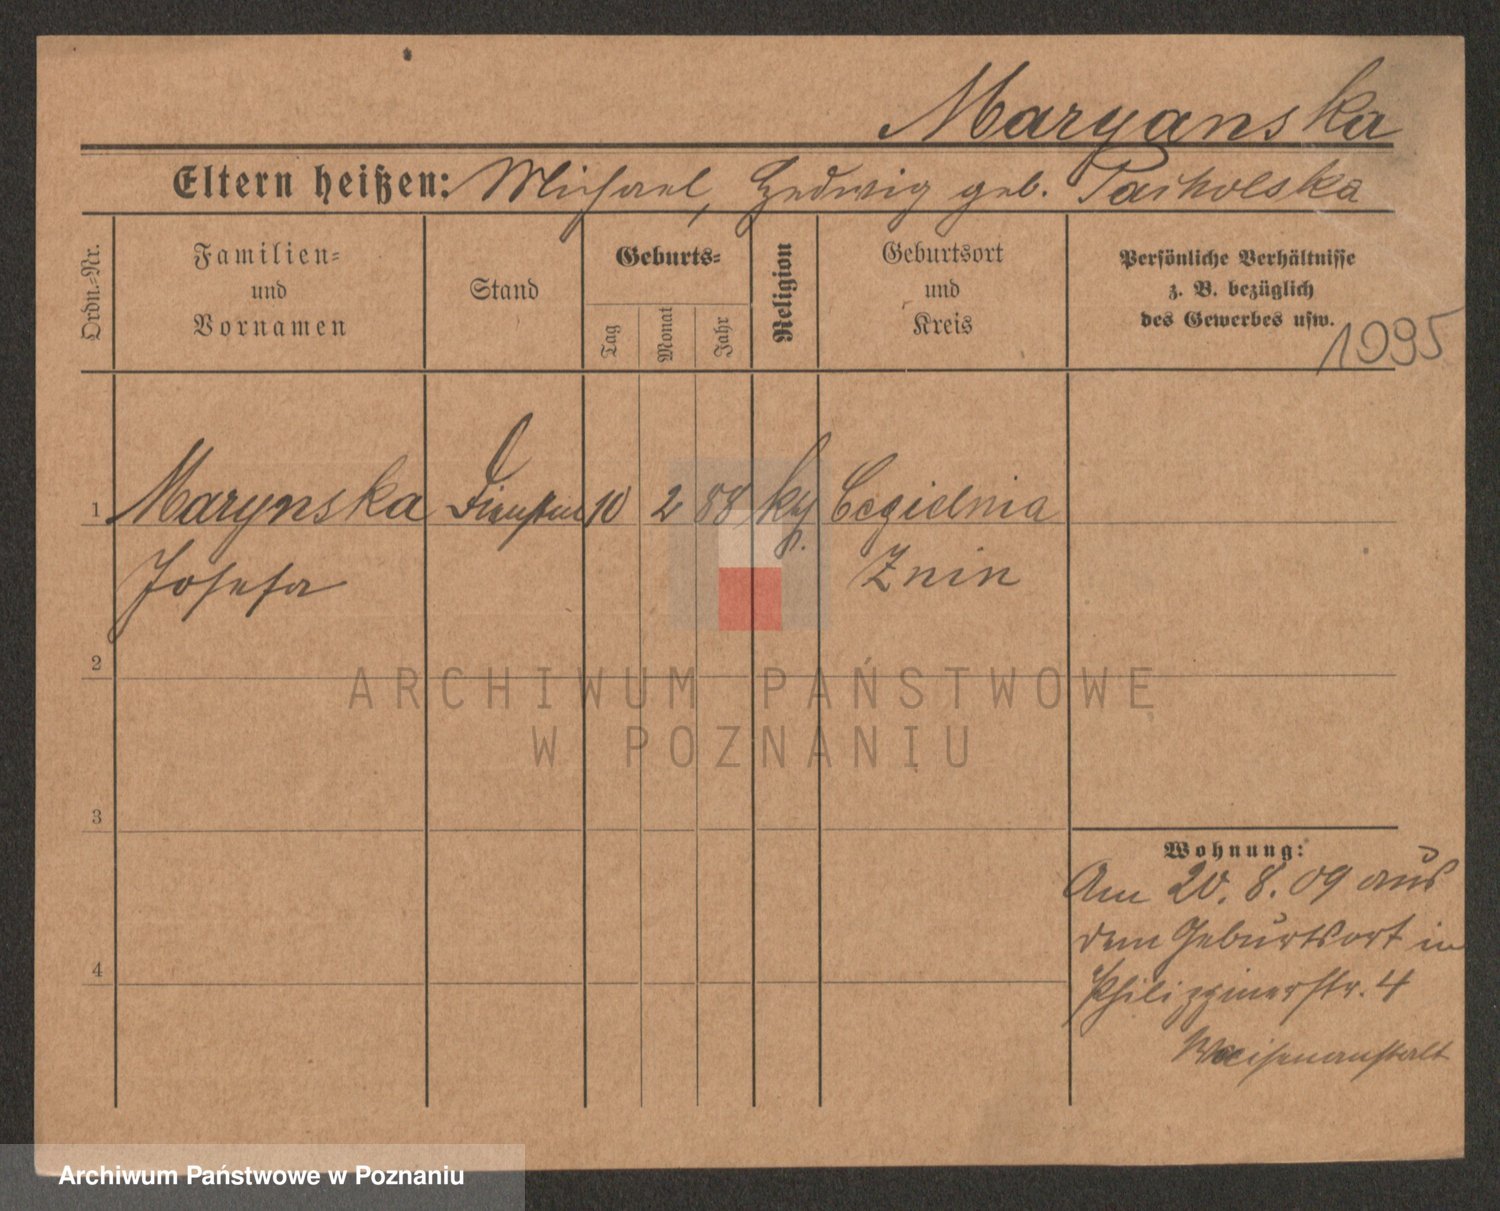 Maryanska
Eltern heißen: Michael, Hedwig geb.
Ordn.-Nr.
Familien-
und
Vornamen
Stand
Geburts-
Tag
Monat
Jahr
Religion
Geburtsort
und
Kreis
Persönliche Verhältnisse
z. B. bezüglich
des Gewerbes usw.
1095
1 Marynska 10 2 88 Cegielnia
Josefa Znin
2
3
4
Wohnung:
Am 20. 8. 09 aus
dem Geburtsort in
Philippinerstr. 4
Waisenanstalt
ARCHIWUM PAŃSTWOWE
W POZNANIU
Archiwum Państwowe w Poznaniu